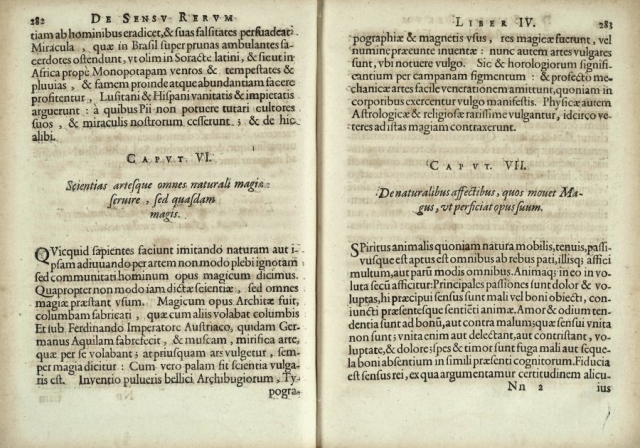 282 DE SENSV RERVM
tiam ab hominibus eradicet, & suas falsitates persuadeat.
Miracula, quæ in Brasil super prunas ambulantes sa-
cerdotes ostendunt, vt olim in Soracte latini, & sicut in
Africa propè Monopotapam ventos & tempestates &
pluuias, & famem proinde atque abundantiam facere
profitentur, Lusitani & Hispani vanitatis & impietatis
arguerunt: à quibus Pii non potuere tutari cultores
suos, & miraculis nostrorum cesserunt; & de hic
alibi.
CAPVT. VI.
Scientias artesque omnes naturali magiæ
seruire, sed quasdam
magis.
QVicquid sapientes faciunt imitando naturam aut i-
psam adiuuando per artem non modo plebi ignotam
sed communitati hominum opus magicum dicimus.
Quapropter non modo iam dictæ scientiæ, sed omnes
magiæ præstant vsum. Magicum opus Architæ fuit,
columbam fabricati, quæ cum aliis volabat columbis
Et sub Ferdinando Imperatore Austriaco, quidam Ger-
manus Aquilam fabrefecit, & muscam, mirifica arte,
quæ per se volabant; at priusquam ars vulgetur, sem-
per magia dicitur: Cum vero palam fit scientia vulga-
ris est. Inuentio pulueris bellici Archibugiorum, Ty-
pogra-
LIBER IV. 283
pographiæ & magnetis vsus, res magicæ fuerunt, vel
numine præeunte inuentæ: nunc autem artes vulgares
sunt, vbi notuere vulgo. Sic & horologiorum signifi-
cantium per campanam figmentum: & profectò me-
chanicæ artes facile venerationem amittunt, quoniam in
corporibus exercentur vulgo manifestis. Physicæ autem
Astrologicæ & religiosæ rarissime vulgantur, idcirco ve-
teres ad istas magiam contraxerunt.
CAPVT. VII.
De naturalibus affectibus, quos mouet Ma-
gus, vt perficiat opus suum.
SPiritus animalis quoniam natura mobilis, tenuis, passi-
vusque est aptus est omnibus ab rebus pati, illisq; affici
multum, aut parū modis omnibus. Animaq; in eo in vo-
luta secū afficitur: Principales passiones sunt dolor & vo-
luptas, hi præcipui sensus sunt mali vel boni obiecti, con-
iuncti præsentesque sentiēti animæ. Amor & odium ten-
dentia sunt ad bonū, aut contra malum; quæ sensui vnita
non sunt; vnita enim aut delectant, aut contristant, vo-
luptate, & dolore; spes & timor sunt fuga mali aut seque-
la boni absentium in simili præsenti cognitorum. Fiducia
est sensus rei, ex qua argumentamur certitudinem alicu-
Nn 2 ius